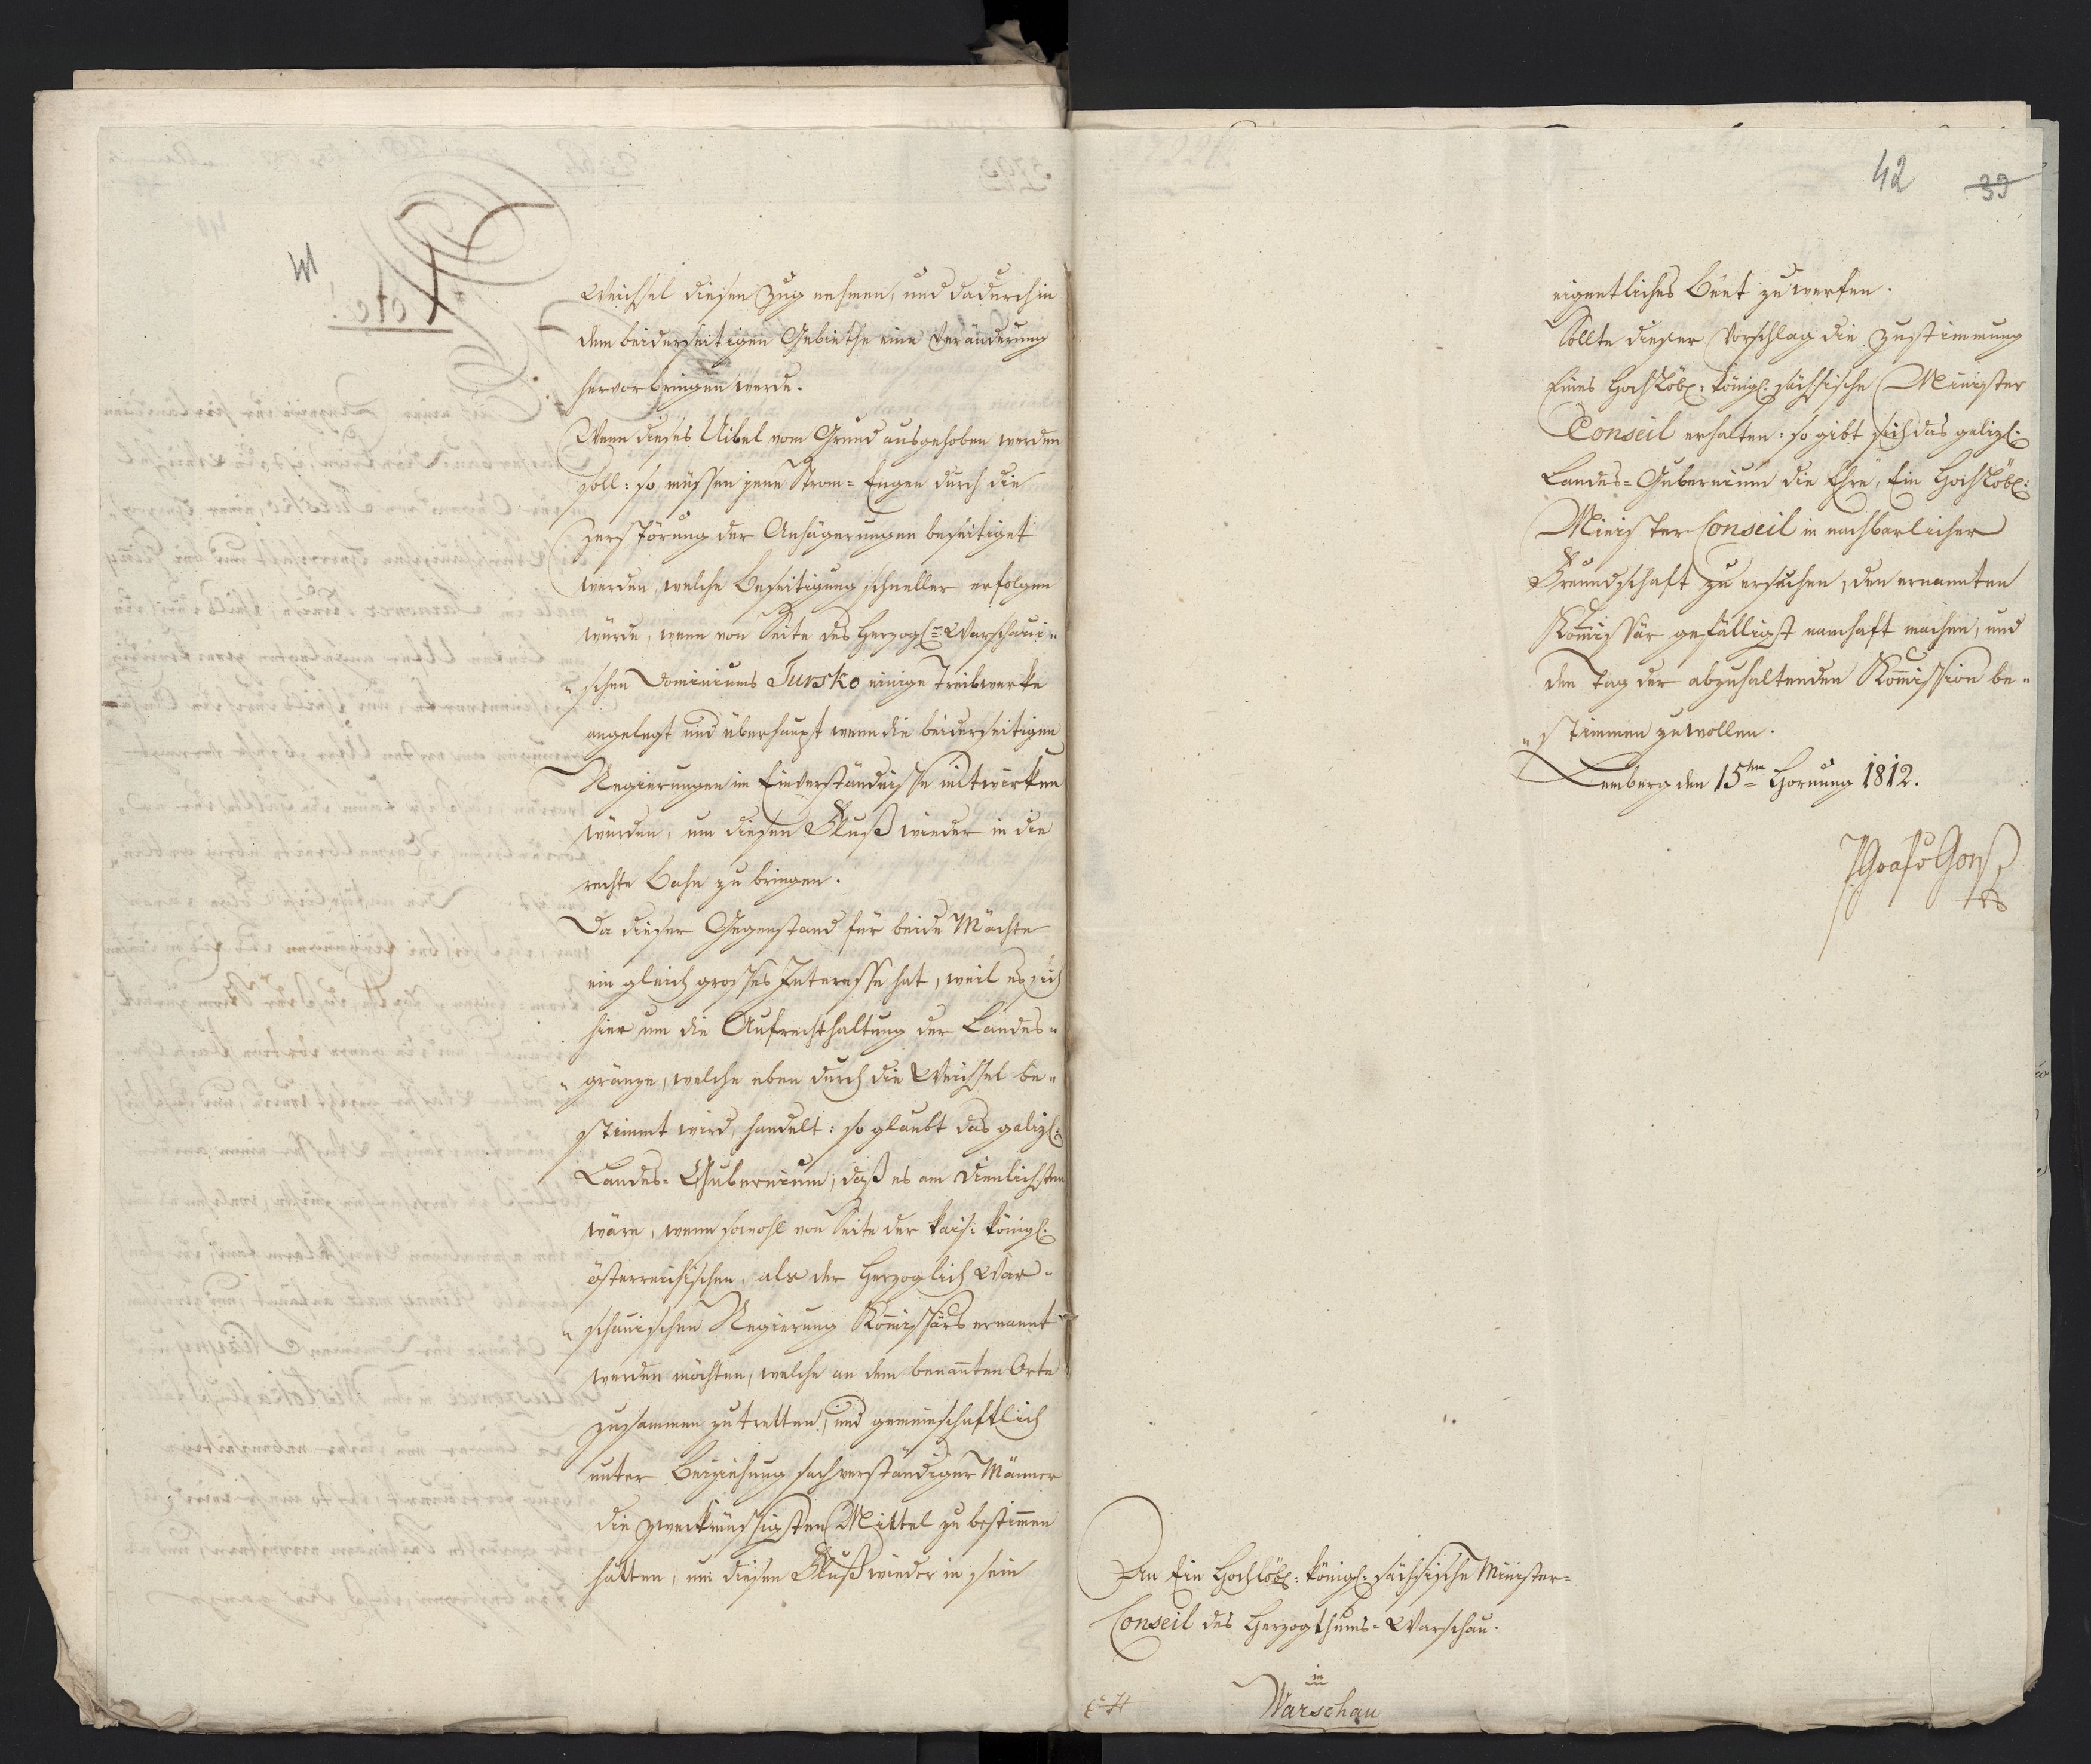 Weichsel diesen Zug nehmen, und dadurch in
dem beiderseitigen Gebiethe eine Veränderung
hervorbringen werde.
Wenn dieses Uibel vom Grund ausgehoben werden
soll: so müssen jene Strom-Engen durch die
Zerstörung der Anhägerungen beseitiget
werden, welche Beseitigung schneller erfolgen
würde, wenn von Seite des Herzogl: Warschaui-
schen Dominiums Tursko einige Treibwerke
angelegt und überhaupt wenn die beiderseitigen
Regierungen im Einverständnisse mitwirken
würden, um diesen Fluß wieder in die
rechte Bahn zu bringen.
Da dieser Gegenstand für beide Mächte
ein gleich grosses Interesse hat, weil es sich
hier um die Aufrechthaltung der Landes-
gränze, welche eben durch die Weichsel be-
stimmt wird, handelt: so glaubt das galiz:
Landes-Gubernium, daß es am dienlichsten
wäre, wenn sowohl von Seite der kais: königl:
österreichischen, als der Herzoglich War-
schauischen Regierung Kommissärs ernannt
werden möchten, welche an dem benannten Orte
zusammen zu tretten, und gemeinschaftlich
unter Beiziehung sachverständiger Männer
die zweckmässigsten Mittel zu bestimmen
hätten, um diesen Fluß wieder in sein
42 39
eigentliches Beet zu werfen.
Sollte dieser Vorschlag die Zustimmung
Eines Hochlöbl: königl: sächsische Minister
Conseil erhalten: so gibt sich das galiz:
Landes-Gubernium die Ehre, Ein Hochlöbl:
Minister Conseil in nachbarlicher
Freundschaft zu ersuchen, den ernannten
Kommissär gefälligst namhaft machen, und
den Tag der abzuhaltenden Kommission be-
stimmen zu wollen.
Lemberg den 15ten Hornung 1812.
An Ein Hochlöbl: königl: sächsische Minister-
Conseil des Herzogthums-Warschau.
in
Warschau